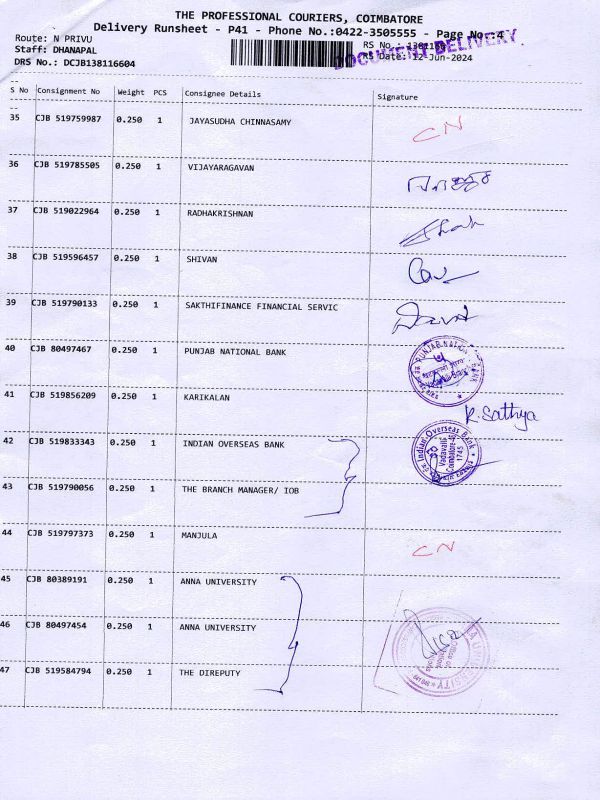 THE PROFESSIONAL COURIERS, COIMBATORE
Delivery Runsheet - P41 - Phone No.:0422-3505555 - Page No.:4
Route: N PRIVU
Staff: DHANAPAL
DRS No.: DCJB138116604
DOCUMENT DELIVERY
RS No.:
RS Date: 12-Jun-2024
S No Consignment No Weight PCS Consignee Details Signature
35 CJB 519759987 0.250 1 JAYASUDHA CHINNASAMY CN
36 CJB 519785505 0.250 1 VIJAYARAGAVAN
37 CJB 519022964 0.250 1 RADHAKRISHNAN
38 CJB 519596457 0.250 1 SHIVAN
39 CJB 519790133 0.250 1 SAKTHIFINANCE FINANCIAL SERVIC
40 CJB 80497467 0.250 1 PUNJAB NATIONAL BANK
41 CJB 519856209 0.250 1 KARIKALAN K. Sathya
42 CJB 519833343 0.250 1 INDIAN OVERSEAS BANK Indian Overseas Bank Vadavalli Coimbatore-46 1745
43 CJB 519790056 0.250 1 THE BRANCH MANAGER/ IOB
44 CJB 519797373 0.250 1 MANJULA CN
45 CJB 80389191 0.250 1 ANNA UNIVERSITY
46 CJB 80497454 0.250 1 ANNA UNIVERSITY
47 CJB 519584794 0.250 1 THE DIREPUTY